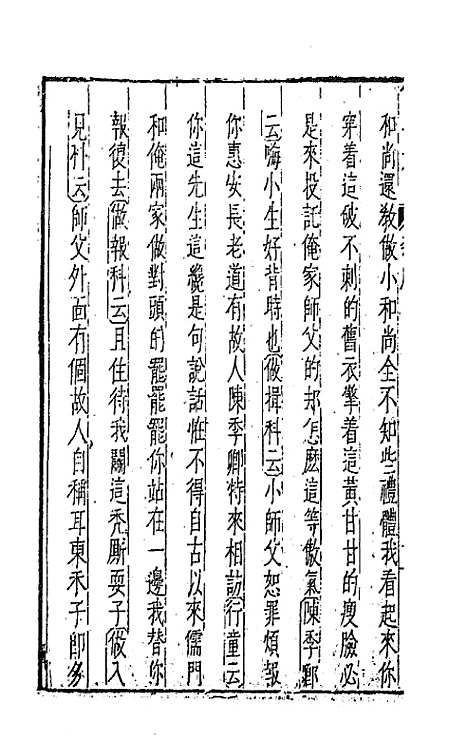 和尚還敎做小和尚全不知些禮體我看起來你
穿着這破不剌的舊衣擎着這黃甘甘的瘦臉必
是來投託俺家師父的却怎麽這等傲氣陳季卿
云嗨小生好背時也做揖科云小師父恕罪煩報
你惠安長老道有故人陳季卿特來相訪行童云
你這先生這纔是句說話怪不得自古以來儒門
和俺兩家做對頭的罷罷罷你站在一邊我替你
報復去做報科云且住待我鬬這禿廝耍子做入
見科云師父外面有個故人自稱耳東禾子卽夕